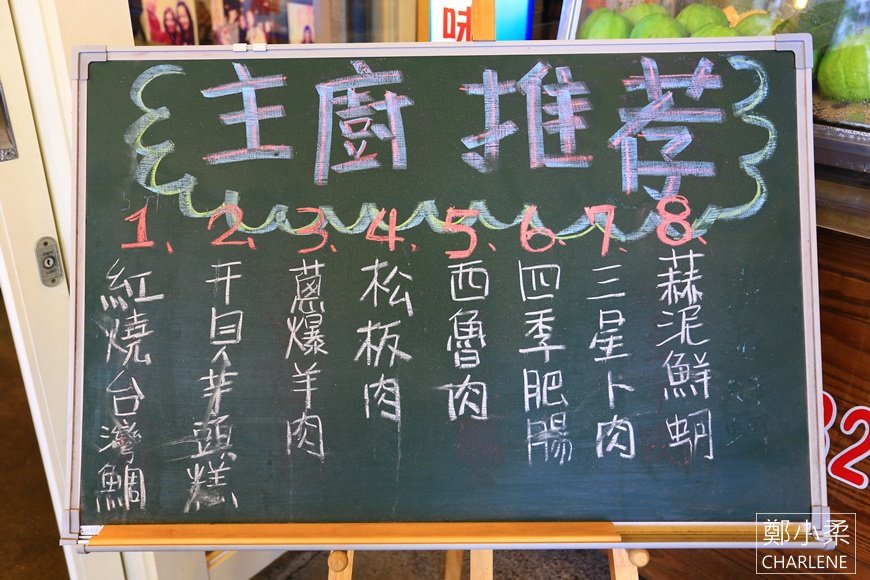 味
主廚推荐
1、紅燒台灣鯛
2、干貝芋頭糕
3、蔥爆羊肉
4、松板肉
5、西魯肉
6、四季肥腸
7、三星卜肉
8、蒜泥鮮蚵
32
鄭小柔
CHARLENE